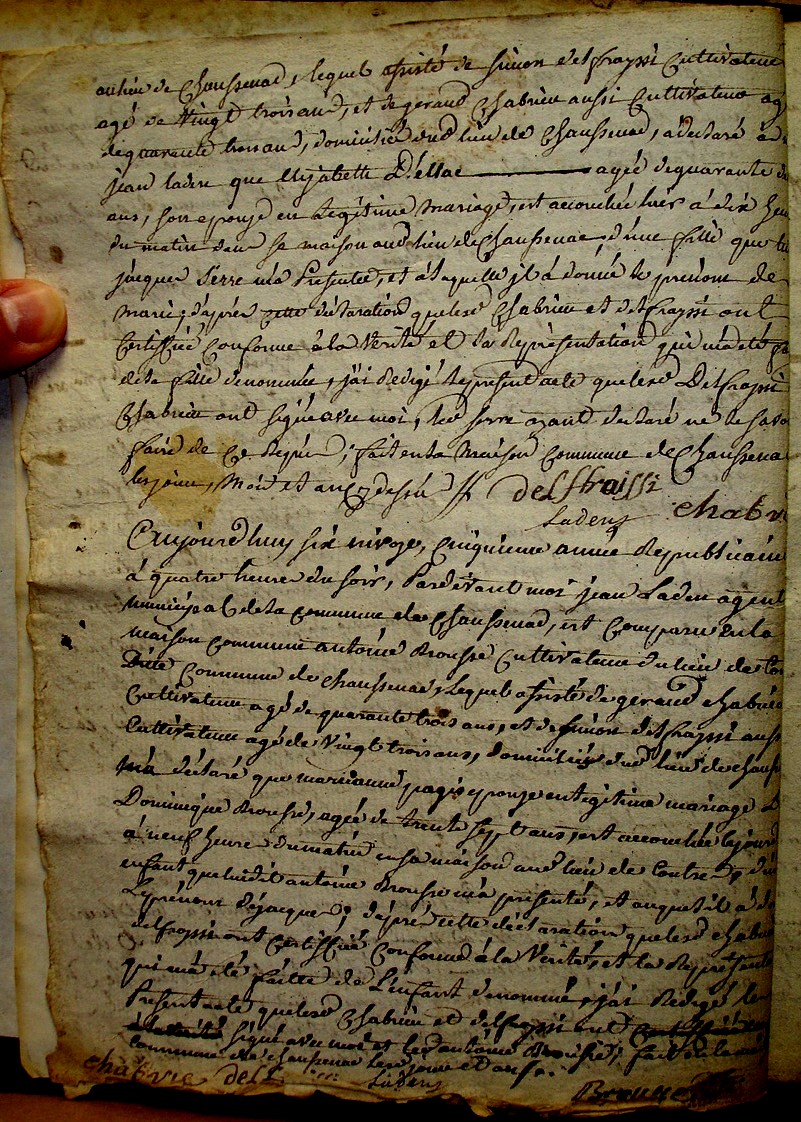 au lieu de Chaussenac, lequel assisté de simon delfrayssi Cultivateur
agé de Vingt trois ans, et de geraud Chabrieu aussi Cultivateur ag
de quarante trois ans, domiciliés dud lieu de Chaussenac, a declaré a
jean laden que Elizabette Delsac agée de quarante
ans, son epouse en Légitime mariage, est accouchée hier à dix heu
du matin dans sa maison aud lieu de Chaussenac, d'une fille que
jacques serre m'a Presentée, et à laquelle jl a donné le prénom de
marie; d'après cette déclaration que lesd Chabrieu et delfrayssi ont
Certiffié Conforme à la Verité et la Représentation qui m'a eté
de la fille denommée, j'ai Redigé le present acte que lesd Delfrayssi
Chabrieu ont signé avec moi, led serre ayant declaré ne le savoi
faire de ce Requis; fait en la maison Commune de Chaussenac
les jour, mois et an cy dessus
delffraissi
Ladens chabri
Aujourd'huy six nivose, Cinquieme année Republicaine
à quatre heure du soir, Pardevant moi jean Laden agent
municipal de la Commune de Chaussenac, est Comparu en la
maison commune antoine Brousse Cultivateur du lieu de Con
Dite Commune de chaussenac, Lequel assisté de geraud chabrieu
Cultivateur agé de quarante trois ans, et de simon delfrayssi auss
Cultivateur agé de Vingt trois ans, domiciliés dud lieu de chauss
m'a déclaré que marianne pagis epouse en Légitime mariage D
Dominique Brousse, agée de trente sept ans, est accouchée
à neuf heure du matin en sa maison aud lieu de Contre,
enfant que ledit antoine Brousse m'a présenté, et auquel il a do
Le prénom de jacques; d'après cette déclaration que lesd chabrieu
delfrayssi ont Certiffié Conforme à la Verité, et la Représent
qui m'a eté faitte de L'enfant denommé, j'ai Redigé le
Present acte que lesd Chabrieu et delfrayssi ont
signé avec moi et led antoine Brousse; fait en la
commune de chaussenac les jour et an
chabrie delf
Ladens
Brousse